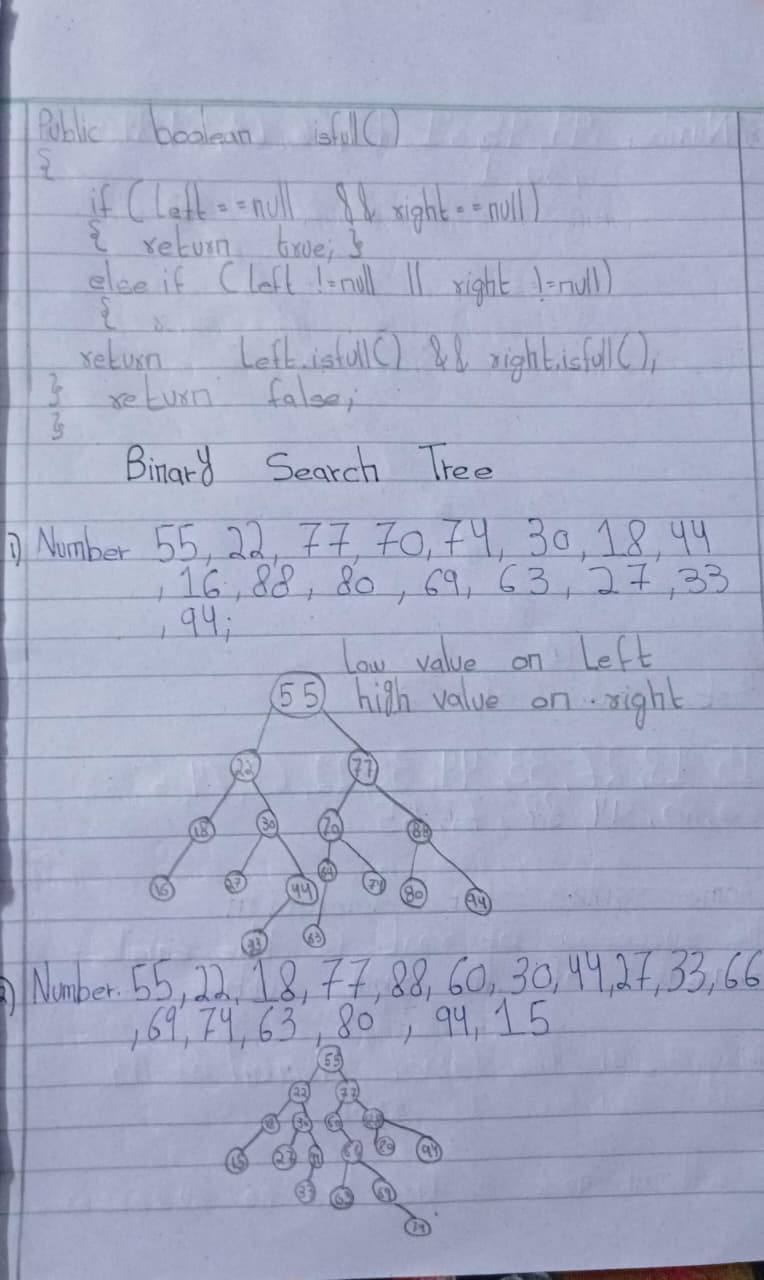 Public boolean isfull()
{
if (left == null && right == null)
{ return true; }
else if (left != null || right != null)
{
return Left.isfull() && right.isfull();
} return false;
}
Binary Search Tree
1) Number 55, 22, 77, 70, 74, 30, 18, 44
, 16, 88, 80, 69, 63, 27, 33
, 94;
Low value on Left
55 high value on right
22 77
18 30 70 88
16 27 44 69 74 80 94
33 63
2) Number. 55, 22, 18, 77, 88, 60, 30, 44, 27, 33, 66
, 69, 74, 63, 80, 94, 15
55
22 77
18 30 60 88
15 27 44 66 80 94
33 63 69
74